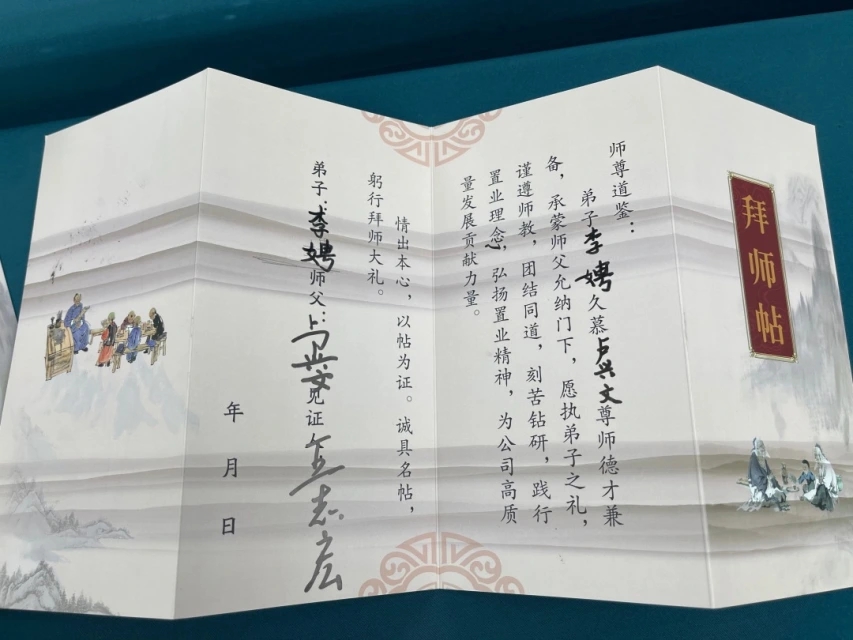 拜师帖
师尊道鉴：
弟子李娉久慕卢兴文尊师德才兼
备，承蒙师父允纳门下，愿执弟子之礼，
谨遵师教，团结同道，刻苦钻研，践行
置业理念，弘扬置业精神，为公司高质
量发展贡献力量。
情出本心，以帖为证。诚具名帖，
躬行拜师大礼。
弟子：李娉师父：卢兴文见证志宏
年月日